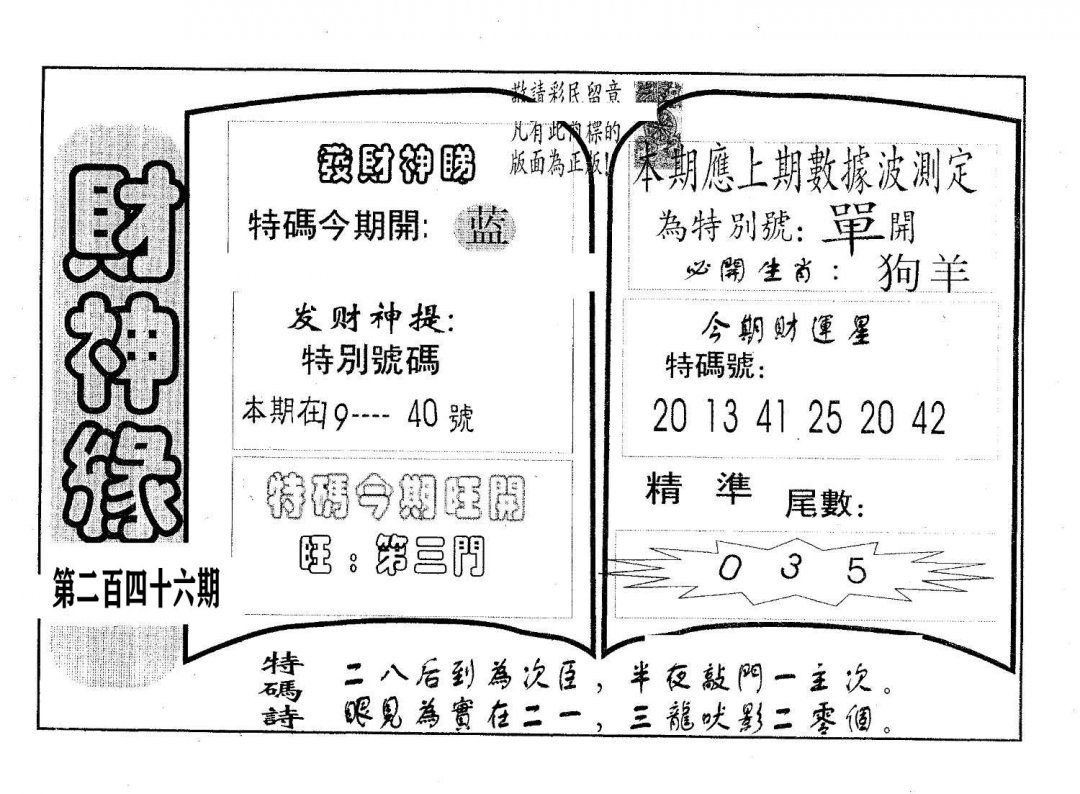 財神緣
第二百四十六期
敬請彩民留意
凡有此商標的
版面為正版!
發財神賜
特碼今期開: 蓝
发财神提:
特別號碼
本期在19---- 40號
特碼今期旺開
旺:第三門
本期應上期數據波測定
為特別號: 單開
必開生肖: 狗羊
今期財運星
特碼號:
20 13 41 25 20 42
精 準 尾數:
0 3 5
特碼詩
二八后到為次臣,半夜敲門一主次。
眼見為實在二一,三龍吠影二零個。